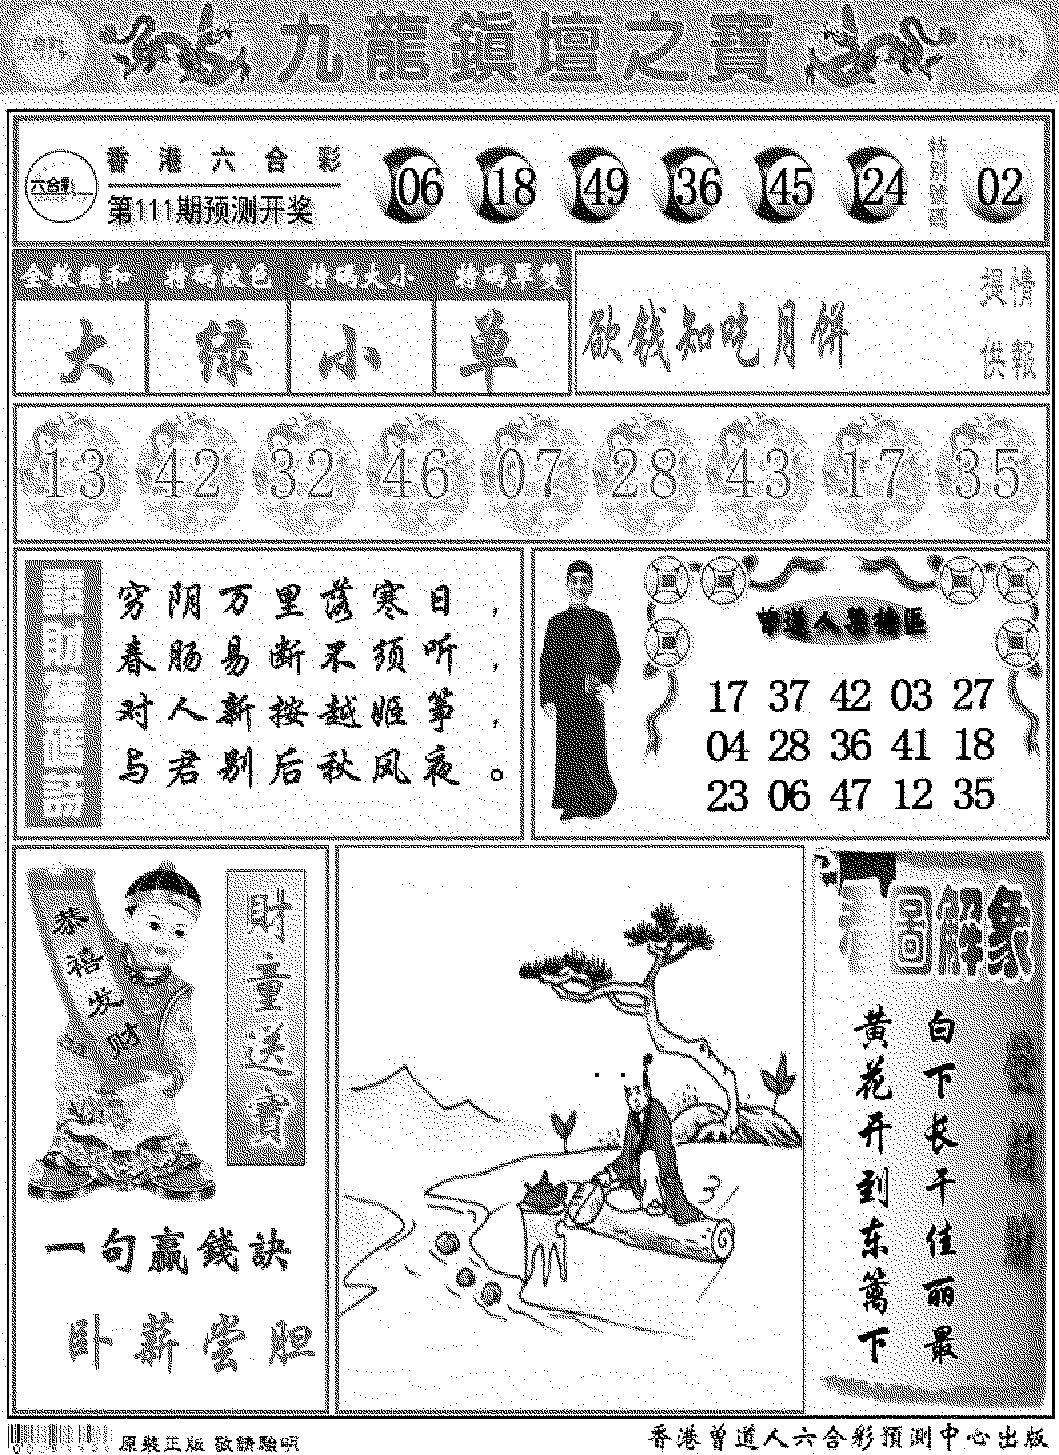 九龍鎮壇之寶
香港六合彩
六合彩
第111期预测开奖
06 18 49 36 45 24
特別號碼
02
全数總和 特碼波色 特碼大小 特碼單雙
大 绿 小 单
欲钱知吃月饼
提情
供報
13 42 32 46 07 28 43 17 35
穷阴万里落寒日，
春肠易断不须听，
对人新按越姬筝，
与君别后秋风夜。
17 37 42 03 27
04 28 36 41 18
23 06 47 12 35
恭禧发财
財童送寶
一句赢錢訣
卧薪尝胆
圖解象
白下长干佳丽最
黄花开到东篱下
原裝正版 敬請聰明
香港曾道人六合彩預測中心出版